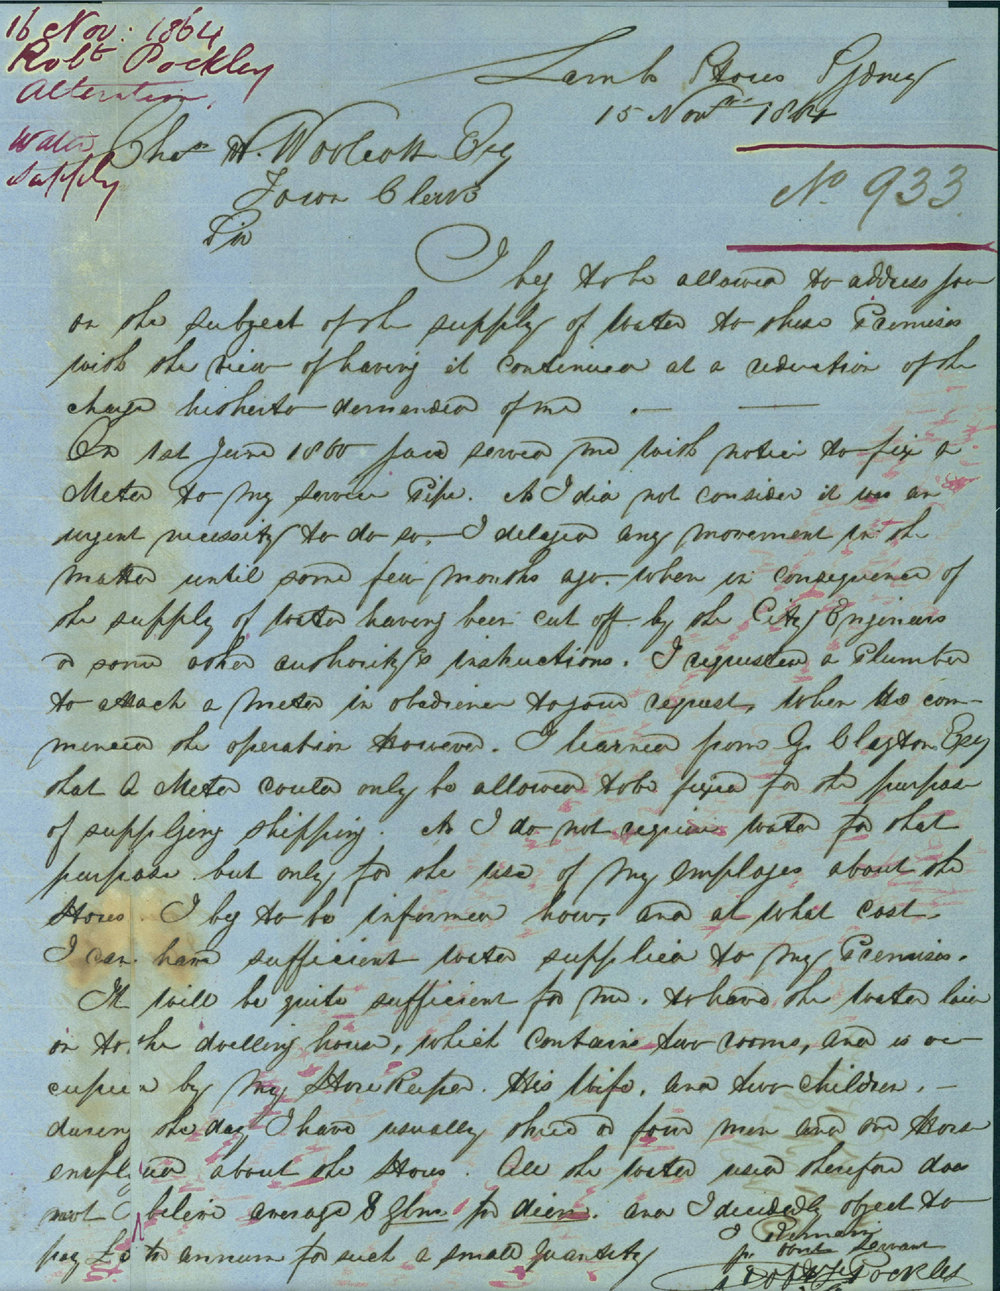 16 Nov: 1864
Robt Pockley
Alteration
Water
Supply
Lamb Stores Sydney
15 Novr 1864
Chas H. Woolcott Esq
Town Clerk
No. 933.
Sir
I beg to be allowed to address you
on the subject of the supply of Water to these Premises
with the view of having it continued at a reduction of the
charge hitherto demanded of me
On 1st June 1860 you served me with notice to fix a
Meter to my service Pipe. As I did not consider it was an
urgent necessity to do so, I delayed any movement in the
matter until some few months ago. When in consequence of
the supply of Water having been cut off by the City Engineers
or some other authority's instructions. I requested a Plumber
to attach a Meter in obedience to your request, When he com-
menced the operation However. I learned from G. Clayton Esq
that a Meter could only be allowed to be fixed for the purpose
of supplying shipping. As I do not require water for that
purpose but only for the use of my employes about the
Stores I beg to be informed how, and at what cost
I can have sufficient water supplied to my Premises.
It will be quite sufficient for me. to have the water laid
on to the dwelling house, which contains two rooms, and is oc-
cupied by my StoreKeeper. His Wife, and two children. -
during the day I have usually three or four men and one Horse
employed about the Stores. All the water used therefore does
not I believe average 8 Glns per diem. and I decidedly object to
pay per annum for such a small quantity
I Remain
yr obnt Servant
Robt Pockley